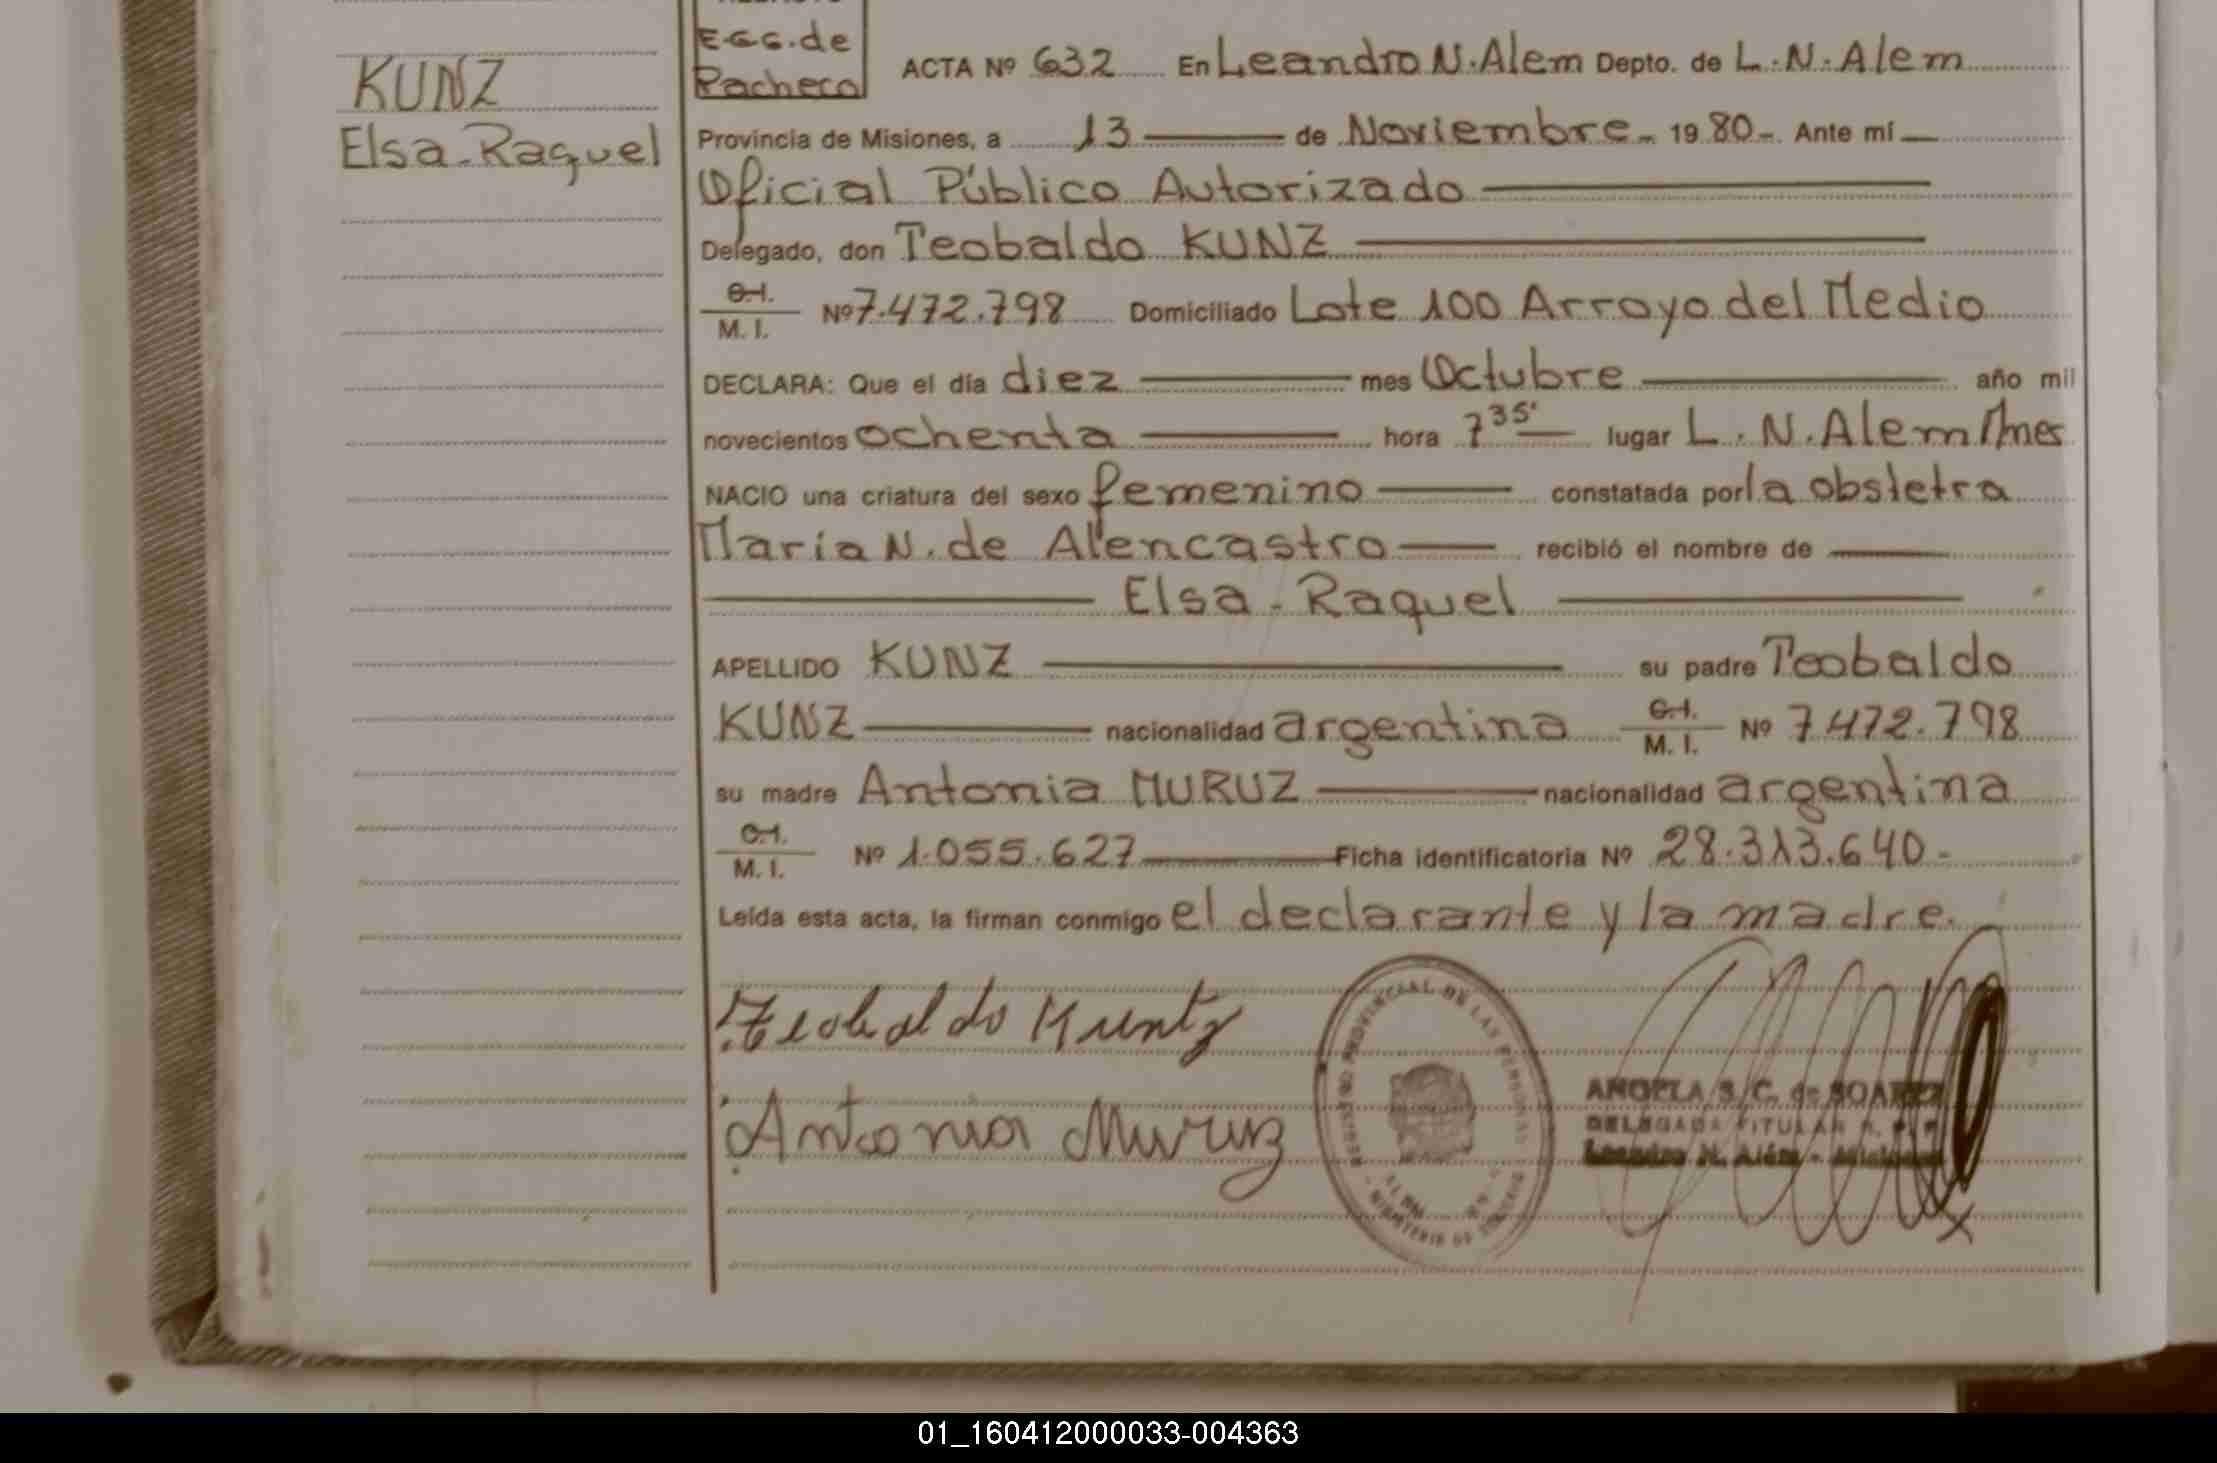 KUNZ
Elsa-Raquel
EGG. de
Pacheco
ACTA Nº 632 En Leandro N. Alem Depto. de L.N. Alem
Provincia de Misiones, a 13 — de Noviembre - 1980-. Ante mí —
Oficial Público Autorizado —
Delegado, don Teobaldo KUNZ —
C.I. / M. I. Nº 7.472.798 Domiciliado Lote 100 Arroyo del Medio
DECLARA: Que el día diez — mes Octubre — año mil
novecientos ochenta — hora 7 35' — lugar L. N. Alem/Mnes
NACIO una criatura del sexo femenino — constatada por la obstetra
María N. de Alencastro — recibió el nombre de —
— Elsa - Raquel —
APELLIDO KUNZ — su padre Teobaldo
KUNZ — nacionalidad argentina C.I. / M. I. Nº 7.472.798
su madre Antonia MURUZ — nacionalidad argentina
C.I. / M. I. Nº 1.055.627 — Ficha identificatoria Nº 28.313.640-
Leída esta acta, la firman conmigo el declarante y la madre.
Teobaldo Kuntz
Antonia Muruz
REGISTRO PROVINCIAL DE LAS PERSONAS
MINISTERIO DE
ANGELA S. C. de SOAREZ
DELEGADA TITULAR R. P. P.
Leandro N. Além - Misiones
01_160412000033-004363